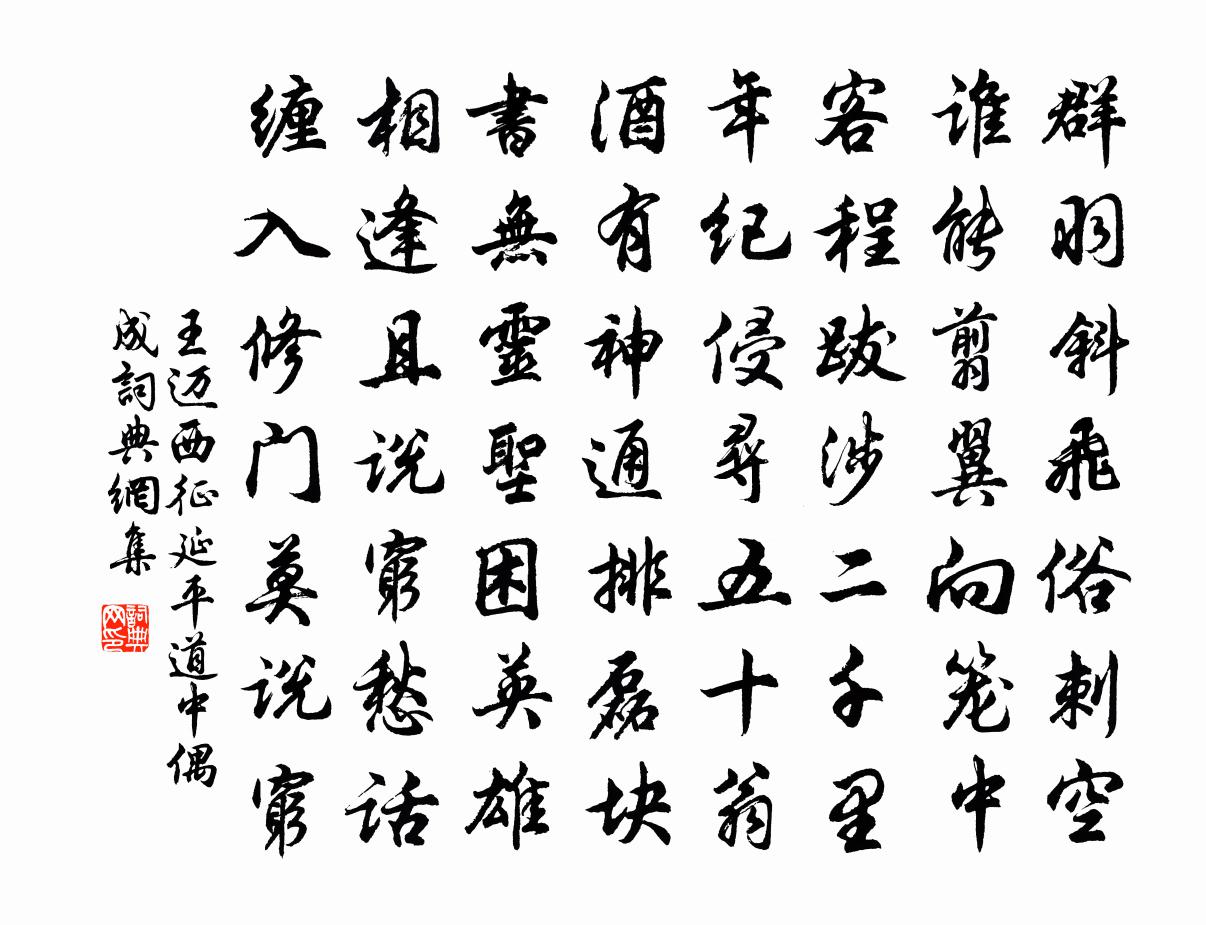 群羽斜飛俗刺空
谁能剪翼向笼中
客程跋涉二千里
年纪侵尋五十翁
酒有神通排磊块
書無靈聖困英雄
相逢且说窮愁话
缠入修门莫说窮
王迈西征延平道中偶
成詞典網集
詞典网印